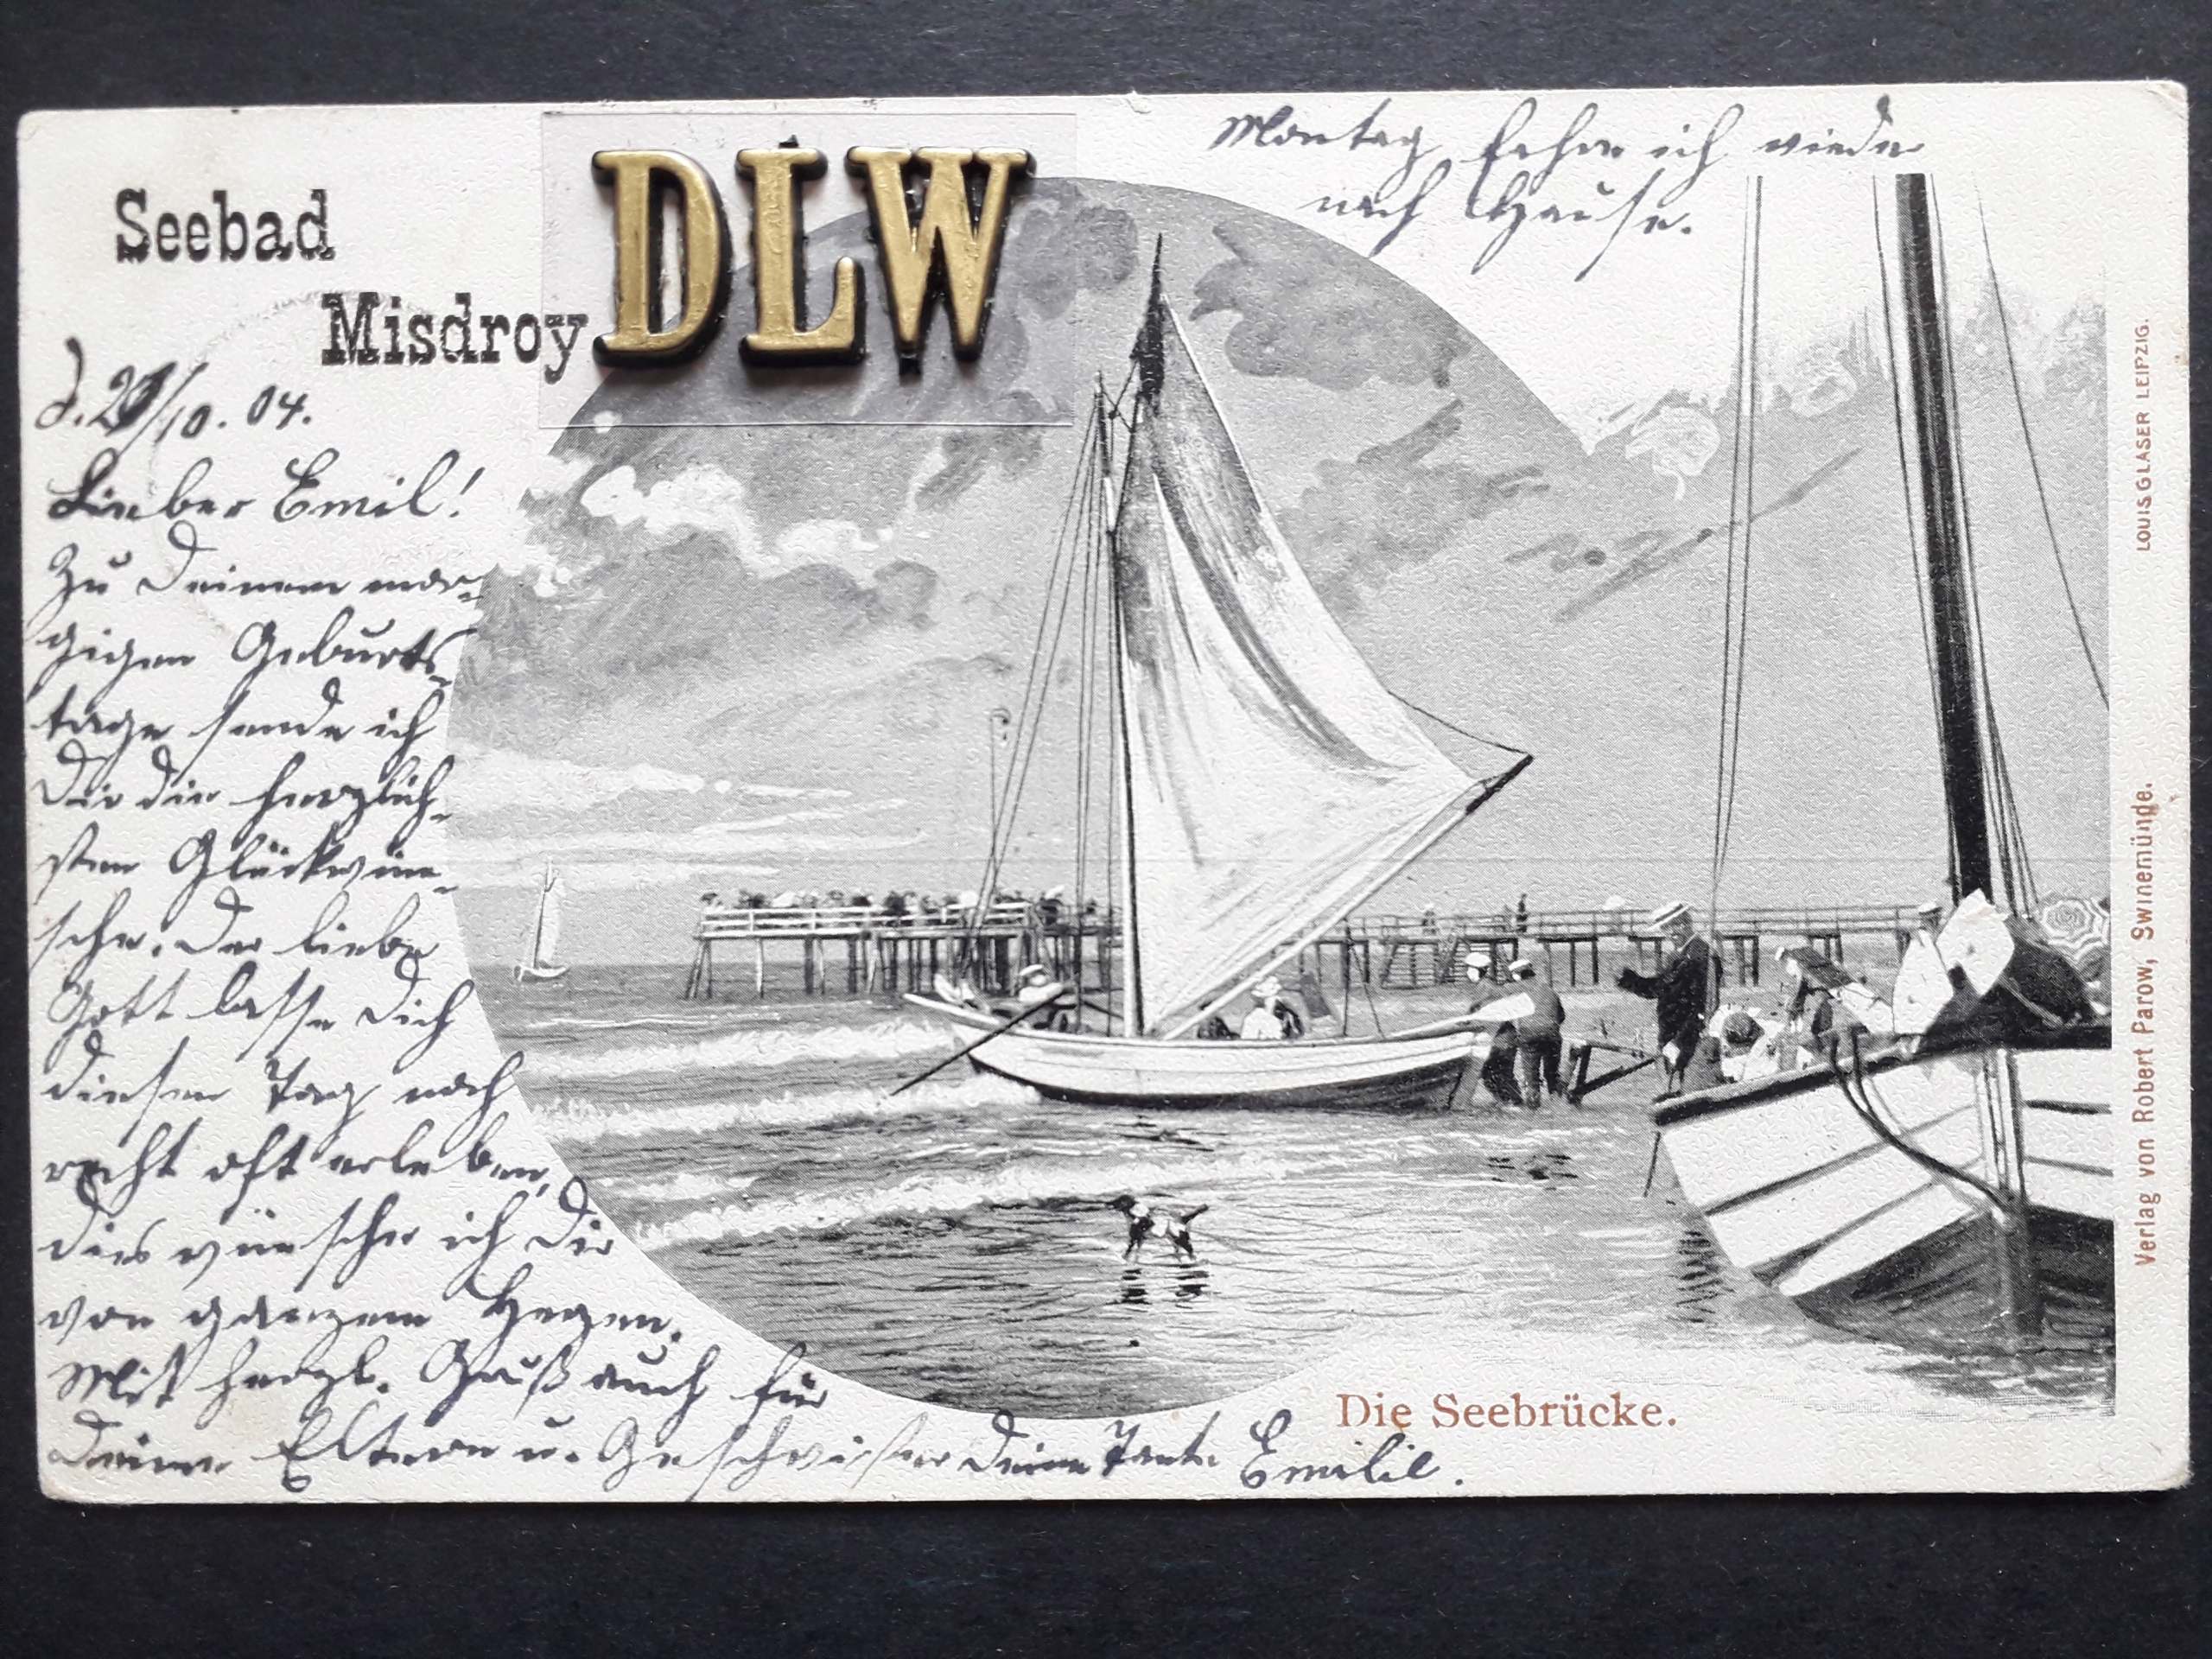 Seebad
Misdroy
DLW
Montag fahre ich wieder
nach Hause.
d. 21/10. 04.
Lieber Emil!
Zu Deinem mor-
gigen Geburts-
tage sende ich
Dir die herzlich-
sten Glückwün-
sche. Der liebe
Gott lasse Dich
diesen Tag noch
recht oft erleben,
dies wünsche ich Dir
von ganzem Herzen.
Mit herzl. Gruß auch für
Deine Eltern u. Geschwister Deine Tante Emilie.
Die Seebrücke.
Verlag von Robert Parow, Swinemünde.
LOUIS GLASER LEIPZIG.